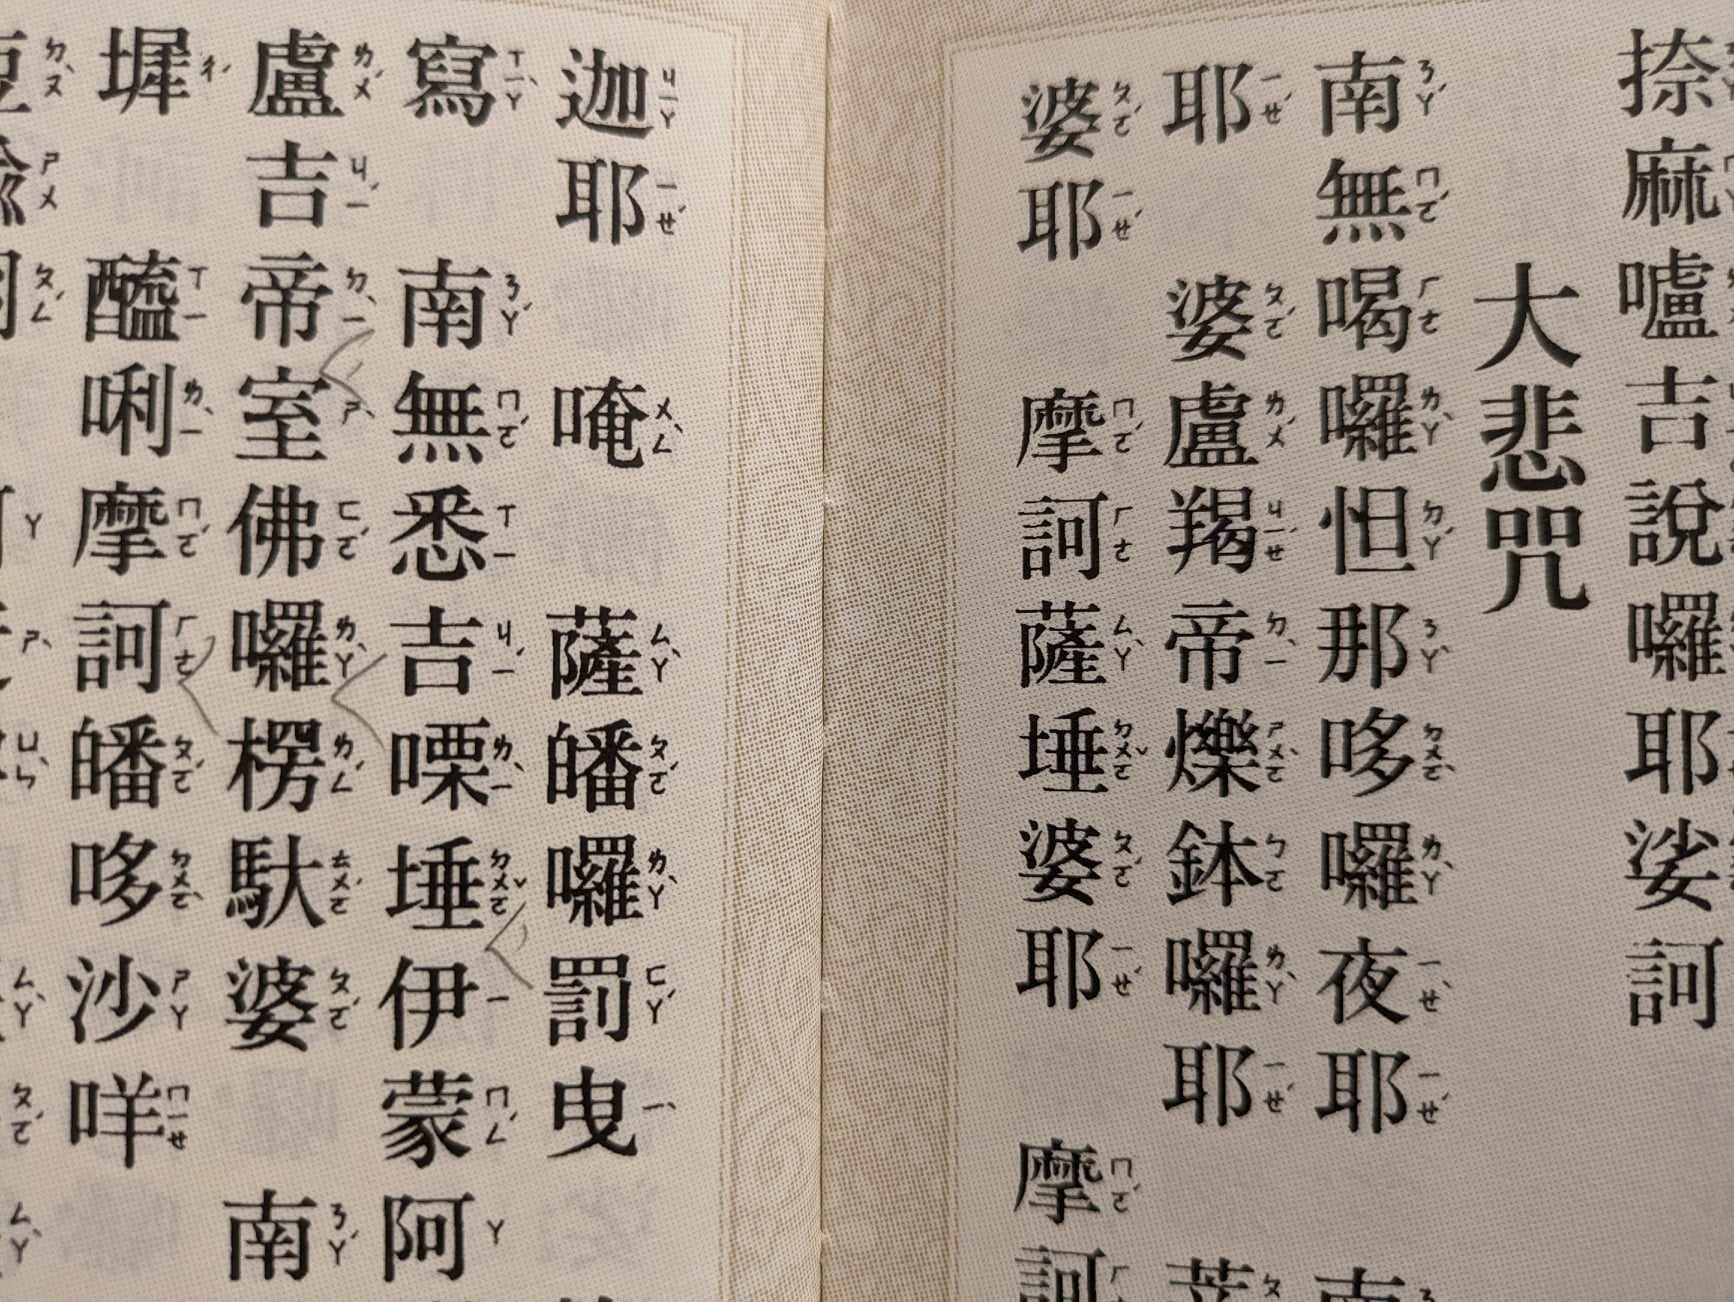 捺麻嚧吉說囉耶娑訶
大悲咒
南無喝囉怛那哆囉夜耶 南
耶 婆盧羯帝爍鉢囉耶 菩
婆耶 摩訶薩埵婆耶 摩訶
迦耶 唵 薩皤囉罰曳
寫 南無悉吉㗚埵伊蒙阿
盧吉帝室佛囉楞馱婆 南
墀 醯唎摩訶皤哆沙咩